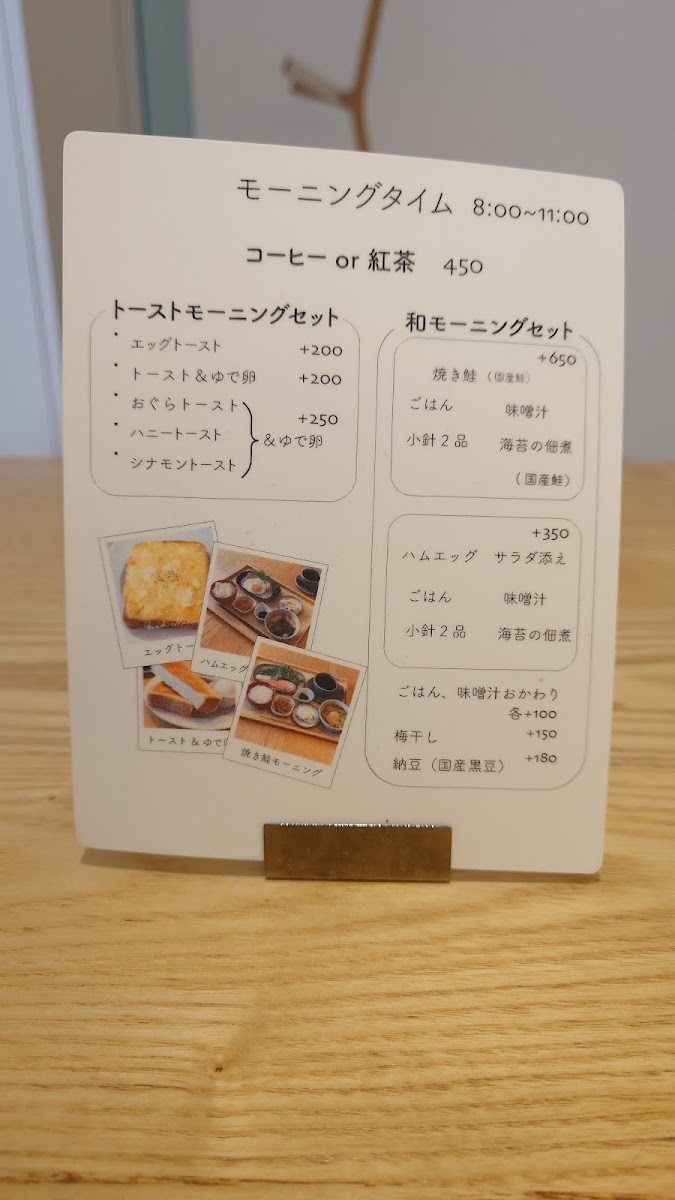 モーニングタイム 8:00~11:00
コーヒー or 紅茶 450
トーストモーニングセット
・エッグトースト +200
・トースト&ゆで卵 +200
・おぐらトースト
・ハニートースト
・シナモントースト
+250
&ゆで卵
和モーニングセット
+650
焼き鮭 (国産鮭)
ごはん 味噌汁
小針2品 海苔の佃煮
(国産鮭)
+350
ハムエッグ サラダ添え
ごはん 味噌汁
小針2品 海苔の佃煮
ごはん、味噌汁おかわり
各+100
梅干し +150
納豆(国産黒豆) +180
エッグトー
ハムエッグ
トースト&ゆで
焼き鮭モーニング